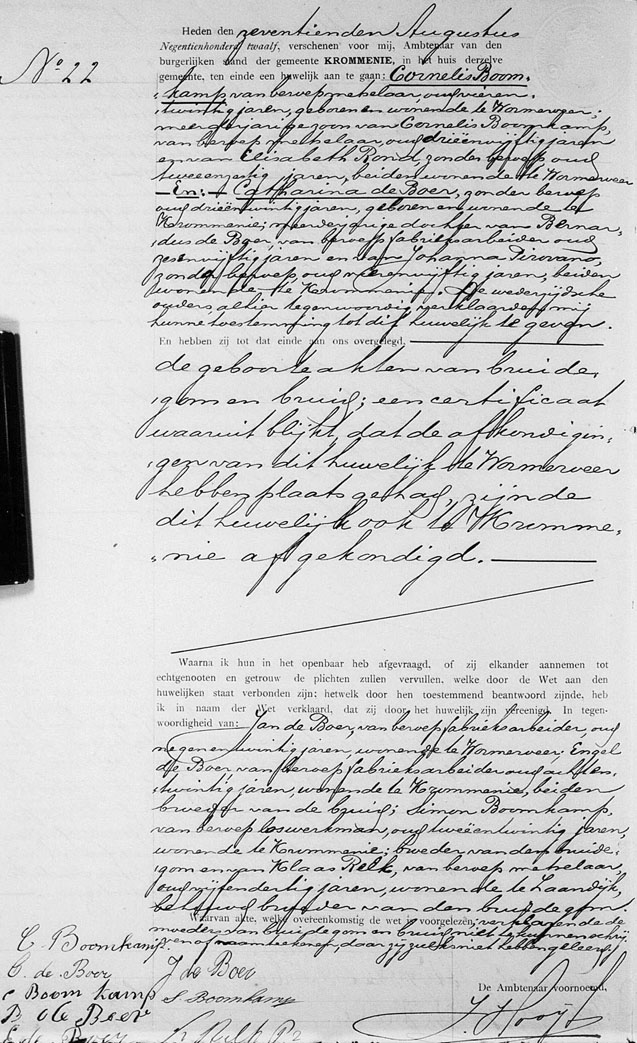 Nº 22
Heden den zeventienden Augustus
Negentienhonderd twaalf, verschenen voor mij, Ambtenaar van den
burgerlijken stand der gemeente KROMMENIE, in het huis derzelve
gemeente, ten einde een huwelijk aan te gaan: Cornelis Boom-
kamp, van beroep metselaar, oud vieren-
twintig jaren, geboren en wonende te Wormerveer,
meerderjarige zoon van Cornelis Boomkamp,
van beroep metselaar, oud drieënvijftig jaren
en van Elisabeth Rond, zonder beroep oud
tweeenzestig jaren, beiden wonende te Wormerveer
En: Catharina de Boer, zonder beroep
oud drieëntwintig jaren, geboren en wonende te
Krommenie; meerderjarige dochter van Bernar-
dus de Boer, van beroep fabrieksarbeider oud
zesenvijftig jaren en van Johanna Pirovano,
zonder beroep, oud jaren, beiden
wonende te Krommenie. De wederzijdsche
ouders, alhier tegenwoordig, verklaarden mij
hunne toestemming tot dit huwelijk te geven.
En hebben zij tot dat einde aan ons overgelegd,
de geboorteakten van bruide-
gom en bruid; een certificaat
waaruit blijkt, dat de afkondigin-
gen van dit huwelijk te Wormerveer
hebben plaats gehad, zijnde
dit huwelijk ook te Kromme-
nie afgekondigd.
Waarna ik hun in het openbaar heb afgevraagd, of zij elkander aannemen tot
echtgenooten en getrouw de plichten zullen vervullen, welke door de Wet aan den
huwelijken staat verbonden zijn; hetwelk door hen toestemmend beantwoord zijnde, heb
ik in naam der Wet verklaard, dat zij door het huwelijk zijn vereenigd. In tegen-
woordigheid van: Jan de Boer, van beroep fabrieksarbeider, oud
negenentwintig jaren, wonende te Wormerveer, Engel
de Boer, van beroep fabrieksarbeider oud achten-
twintig jaren, wonende te Krommenie, beiden
broeder van de bruid; Simon Boomkamp,
van beroep loswerkman, oud tweeëntwintig jaren,
wonende te Krommenie; broeder van den bruide-
gom en van Klaas Relk, van beroep metselaar
oud vijfendertig jaren, wonende te Zaandijk,
behuwd broeder van den bruidegom.
Waarvan akte, welke overeenkomstig de wet is voorgelezen; verklarende de
moeders van bruidegom en bruid niet te kunnen schrij-
ven of naamteekenen, daar zij zulks niet hebben geleerd
C. Boomkamp
C. de Boer J de Boer
C Boomkamp S. Boomkamp
B de Boer
De Ambtenaar voornoemd,